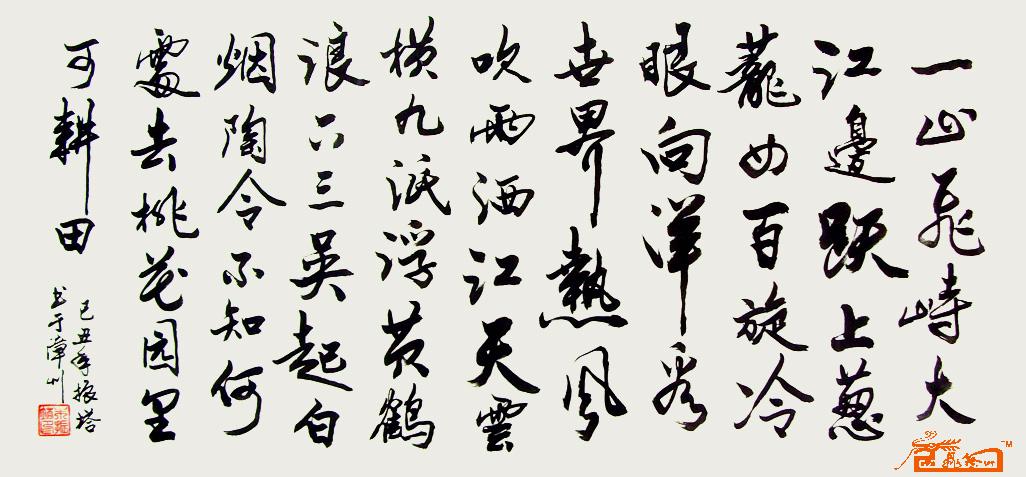 一山飛峙大
江邊跃上葱
蘢四百旋冷
眼向洋看
世界熱風
吹雨洒江天雲
横九派浮黄鶴
浪下三吴起白
烟陶令不知何
處去桃花园里
可耕田
己丑年振塔
书于漳州